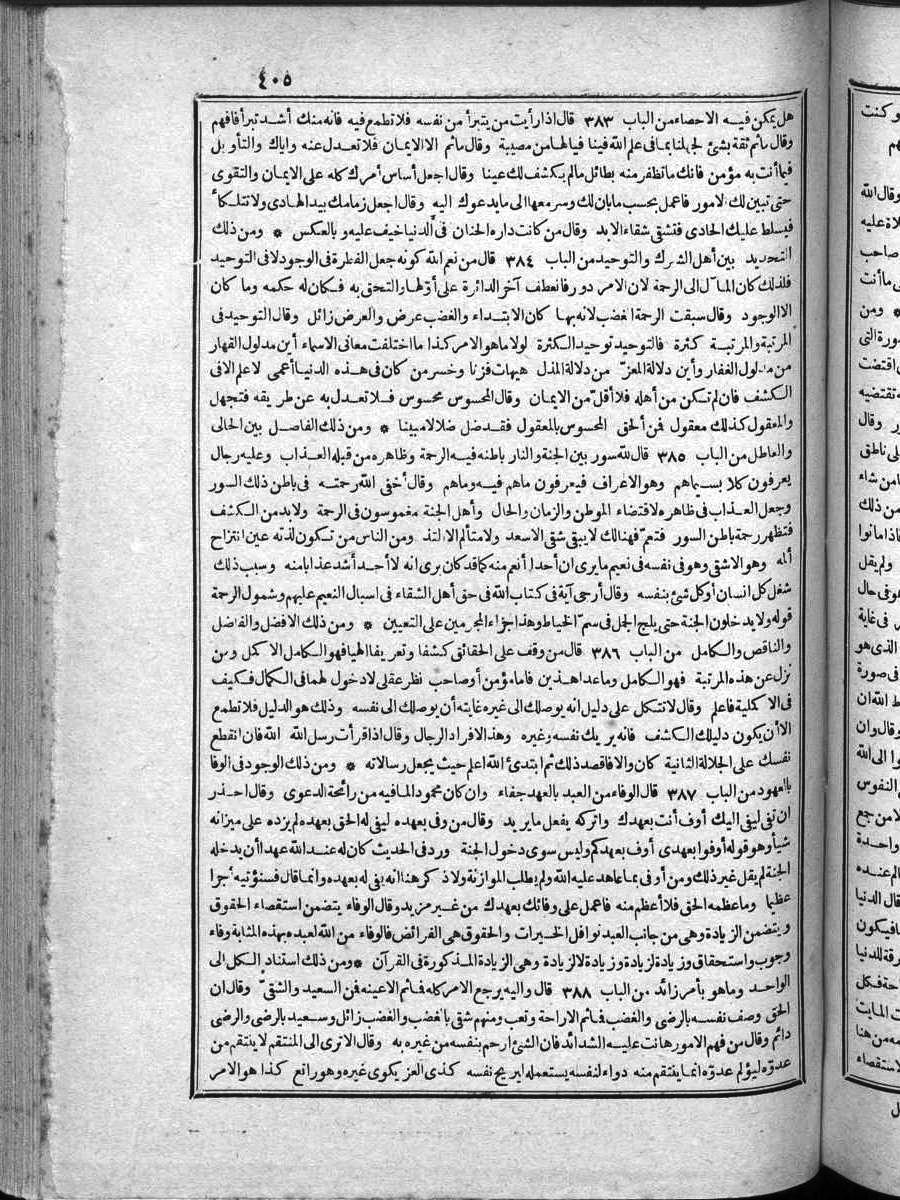 ٤٠٥
هل يمكن فيه الاحصاء من الباب ٣٨٣ قال اذا رأيت من يتبرأ من نفسه فلا تطمع فيه فانه منك أشد تبرأ فافهم
وقال ماثم ثقة بشئ لجهلنا بما فى علم الله فينا فيالها من مصيبة وقال ماثم الا الايمان فلا تعدل عنه واياك والتأويل
فيما أنت به مؤمن فانك ما تظفر منه بطائل مالم يكشف لك عينا وقال اجعل أساس أمرك كله على الايمان والتقوى
حتى تبين لك الامور فاعمل بحسب مابان لك وسر معها الى ما يدعوك اليه وقال اجعل زمامك بيد الهادى ولا تتلكأ
فيسلط عليك الحادى فتشقى شقاء الابد وقال من كانت داره الحنان فى الدنيا خيف عليه وبالعكس * ومن ذلك
التحديد بين أهل الشرك والتوحيد من الباب ٣٨٤ قال من نعم الله كونه جعل الفطرة فى الوجود لا فى التوحيد
فلذلك كان المآل الى الرحمة لان الامر دور فانعطف آخر الدائرة على أولها والتحق به فكان له حكمه وما كان
الا الوجود وقال سبقت الرحمة الغضب لانه بها كان الابتداء والغضب عرض والعرض زائل وقال التوحيد فى
المرتبة والمرتبة كثرة فالتوحيد توحيد الكثرة لولا ما هو الامر كذا ما اختلفت معانى الاسماء أين مدلول القهار
من مدلول الغفار وأين دلالة المعز من دلالة المذل هيهات فزنا وخسر من كان فى هذه الدنيا أعمى لا علم الا فى
الكشف فان لم تكن من أهله فلا أقل من الايمان وقال المحسوس محسوس فلا تعدل به عن طريقه فتجهل
والمعقول كذلك معقول فمن ألحق المحسوس بالمعقول فقد ضل ضلالا مبينا * ومن ذلك الفاصل بين الحالى
والعاطل من الباب ٣٨٥ قال لله سور بين الجنة والنار باطنه فيه الرحمة وظاهره من قبله العذاب وعليه رجال
يعرفون كلا بسيماهم وهو الاعراف فيعرفون ماهم فيه وماهم وقال أخفى الله رحمته فى باطن ذلك السور
وجعل العذاب فى ظاهره لاقتضاء الموطن والزمان والحال وأهل الجنة مغموسون فى الرحمة ولابد من الكشف
فتظهر رحمة باطن السور فتعم فهنالك لا يبقى شقى الا سعد ولا متألم الا التذ ومن الناس من تكون لذته عين انتزاح
ألمه وهو الاشقى وهو فى نفسه فى نعيم ما يرى ان أحدا أنعم منه كما قد كان يرى انه لا أحد أشد عذابا منه وسبب ذلك
شغل كل انسان أو كل شئ بنفسه وقال أرجى آية فى كتاب الله فى حق أهل الشقاء فى اسبال النعيم عليهم وشمول الرحمة
قوله ولا يدخلون الجنة حتى يلج الجمل فى سم الخياط وهذا جزاء المجرمين على التعيين * ومن ذلك الافضل والفاضل
والناقص والكامل من الباب ٣٨٦ قال من وقف على الحقائق كشفا وتعريفا الهيا فهو الكامل الا كمل ومن
نزل عن هذه المرتبة فهو الكامل وما عدا هذين فاما مؤمن أو صاحب نظر عقلى لا دخول لهما فى الكمال فكيف
فى الا كملية فاعلم وقال لا تتكل على دليل انه يوصلك الى غيره غايته أن يوصلك الى نفسه وذلك هو الدليل فلا تطمع
الا أن يكون دليلك الكشف فانه يريك نفسه وغيره وهذا لافراد الرجال وقال اذا قرأت رسل الله الله فان انقطع
نفسك على الجلالة الثانية كان والا فاقصد ذلك ثم ابتدئ الله اعلم حيث يجعل رسالاته * ومن ذلك الوجود فى الوفا
بالعهود من الباب ٣٨٧ قال الوفاء من العبد بالعهد جفاء وان كان محمودا لما فيه من رائحة الدعوى وقال احذر
ان تفى ليفى اليك أوف أنت بعهدك واتركه يفعل ما يريد وقال من وفى بعهده ليفى له الحق بعهده لم يزده على ميزانه
شيأ وهو قوله أوفوا بعهدى أوف بعهدكم وليس سوى دخول الجنة ورد فى الحديث كان له عند الله عهدا أن يدخله
الجنة لم يقل غير ذلك ومن أوفى بما عاهد عليه الله ولم يطلب الموازنة ولا ذكر هنا انه يفى له بعهده وانما قال فسنؤتيه أجرا
عظيما وما عظمه الحق فلا أعظم منه فاعمل على وفائك بعهدك من غير مزيد وقال الوفاء يتضمن استقصاء الحقوق
ويتضمن الزيادة وهى من جانب العبد نوافل الخيرات والحقوق هى الفرائض فالوفاء من الله لعبده بهذه المثابة وفاء
وجوب واستحقاق وزيادة لزيادة وزيادة لا لزيادة وهى الزيادة المذكورة فى القرآن * ومن ذلك استناد الكل الى
الواحد وما هو بأمر زائد من الباب ٣٨٨ قال واليه يرجع الامر كله فماثم الا عينه فمن السعيد والشقى وقال ان
الحق وصف نفسه بالرضى والغضب فماثم الا راحة وتعب ومنهم شقى بالغضب والغضب زائل وسعيد بالرضى والرضى
دائم وقال من فهم الامور هانت عليه الشدائد فان الشئ ارحم بنفسه من غيره به وقال الا ترى الى المنتقم لا ينتقم من
عدوه ليؤلم عدوه انما ينتقم منه دواء لنفسه يستعمله ليريح نفسه كذى العر يكوى غيره وهو راتع كذا هو الامر